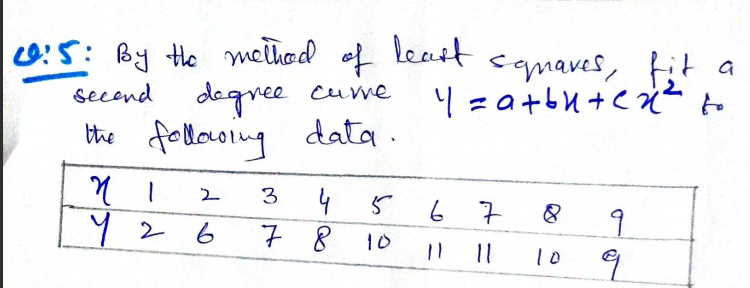 Q:5: By the method of least squares, fit a
second degree curve y = a+bx+cx² to
the following data.
x 1 2 3 4 5 6 7 8 9
y 2 6 7 8 10 11 11 10 9